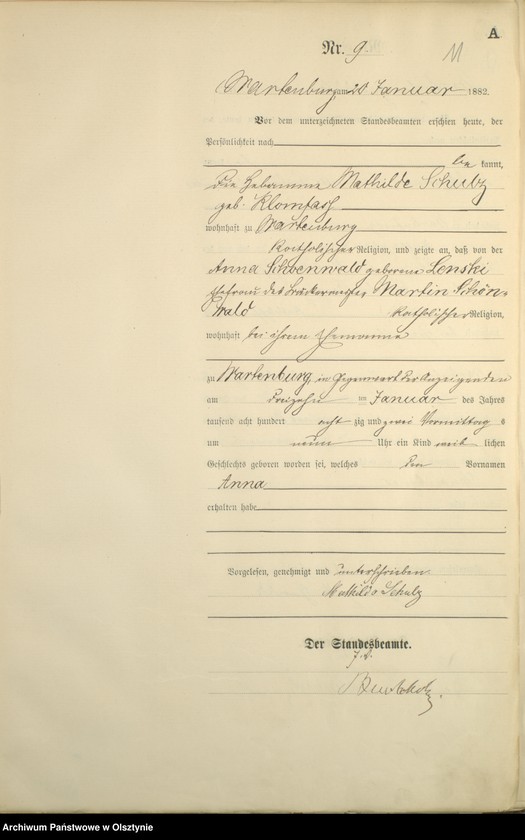 A
Nr. 9.
11
Wartenburg, am 20 Januar 1882.
Vor dem unterzeichneten Standesbeamten erschien heute, der
Persönlichkeit nach
be kannt,
die Hebamme Mathilde Schulz
geb. Klomfass
wohnhaft zu Wartenburg
katholischer Religion, und zeigte an, daß von der
Anna Schoenwald geborene Lenski
Ehefrau des Bäckermeisters Martin Schön-
wald
katholischer Religion,
wohnhaft bei ihrem Ehemanne
zu Wartenburg, in Gegenwart der Anzeigenden
am dreizehn im Januar des Jahres
tausend acht hundert acht zig und zwei Vormittag s
um neun Uhr ein Kind weib lichen
Geschlechts geboren worden sei, welches den Vornamen
Anna
erhalten habe
Vorgelesen, genehmigt und unterschrieben.
Mathilde Schulz
Der Standesbeamte.
Archiwum Państwowe w Olsztynie